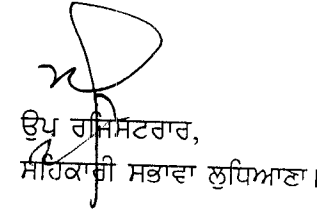 ਉਪ ਰਜਿਸਟਰਾਰ,
ਸਹਿਕਾਰੀ ਸਭਾਵਾ ਲੁਧਿਆਣਾ।